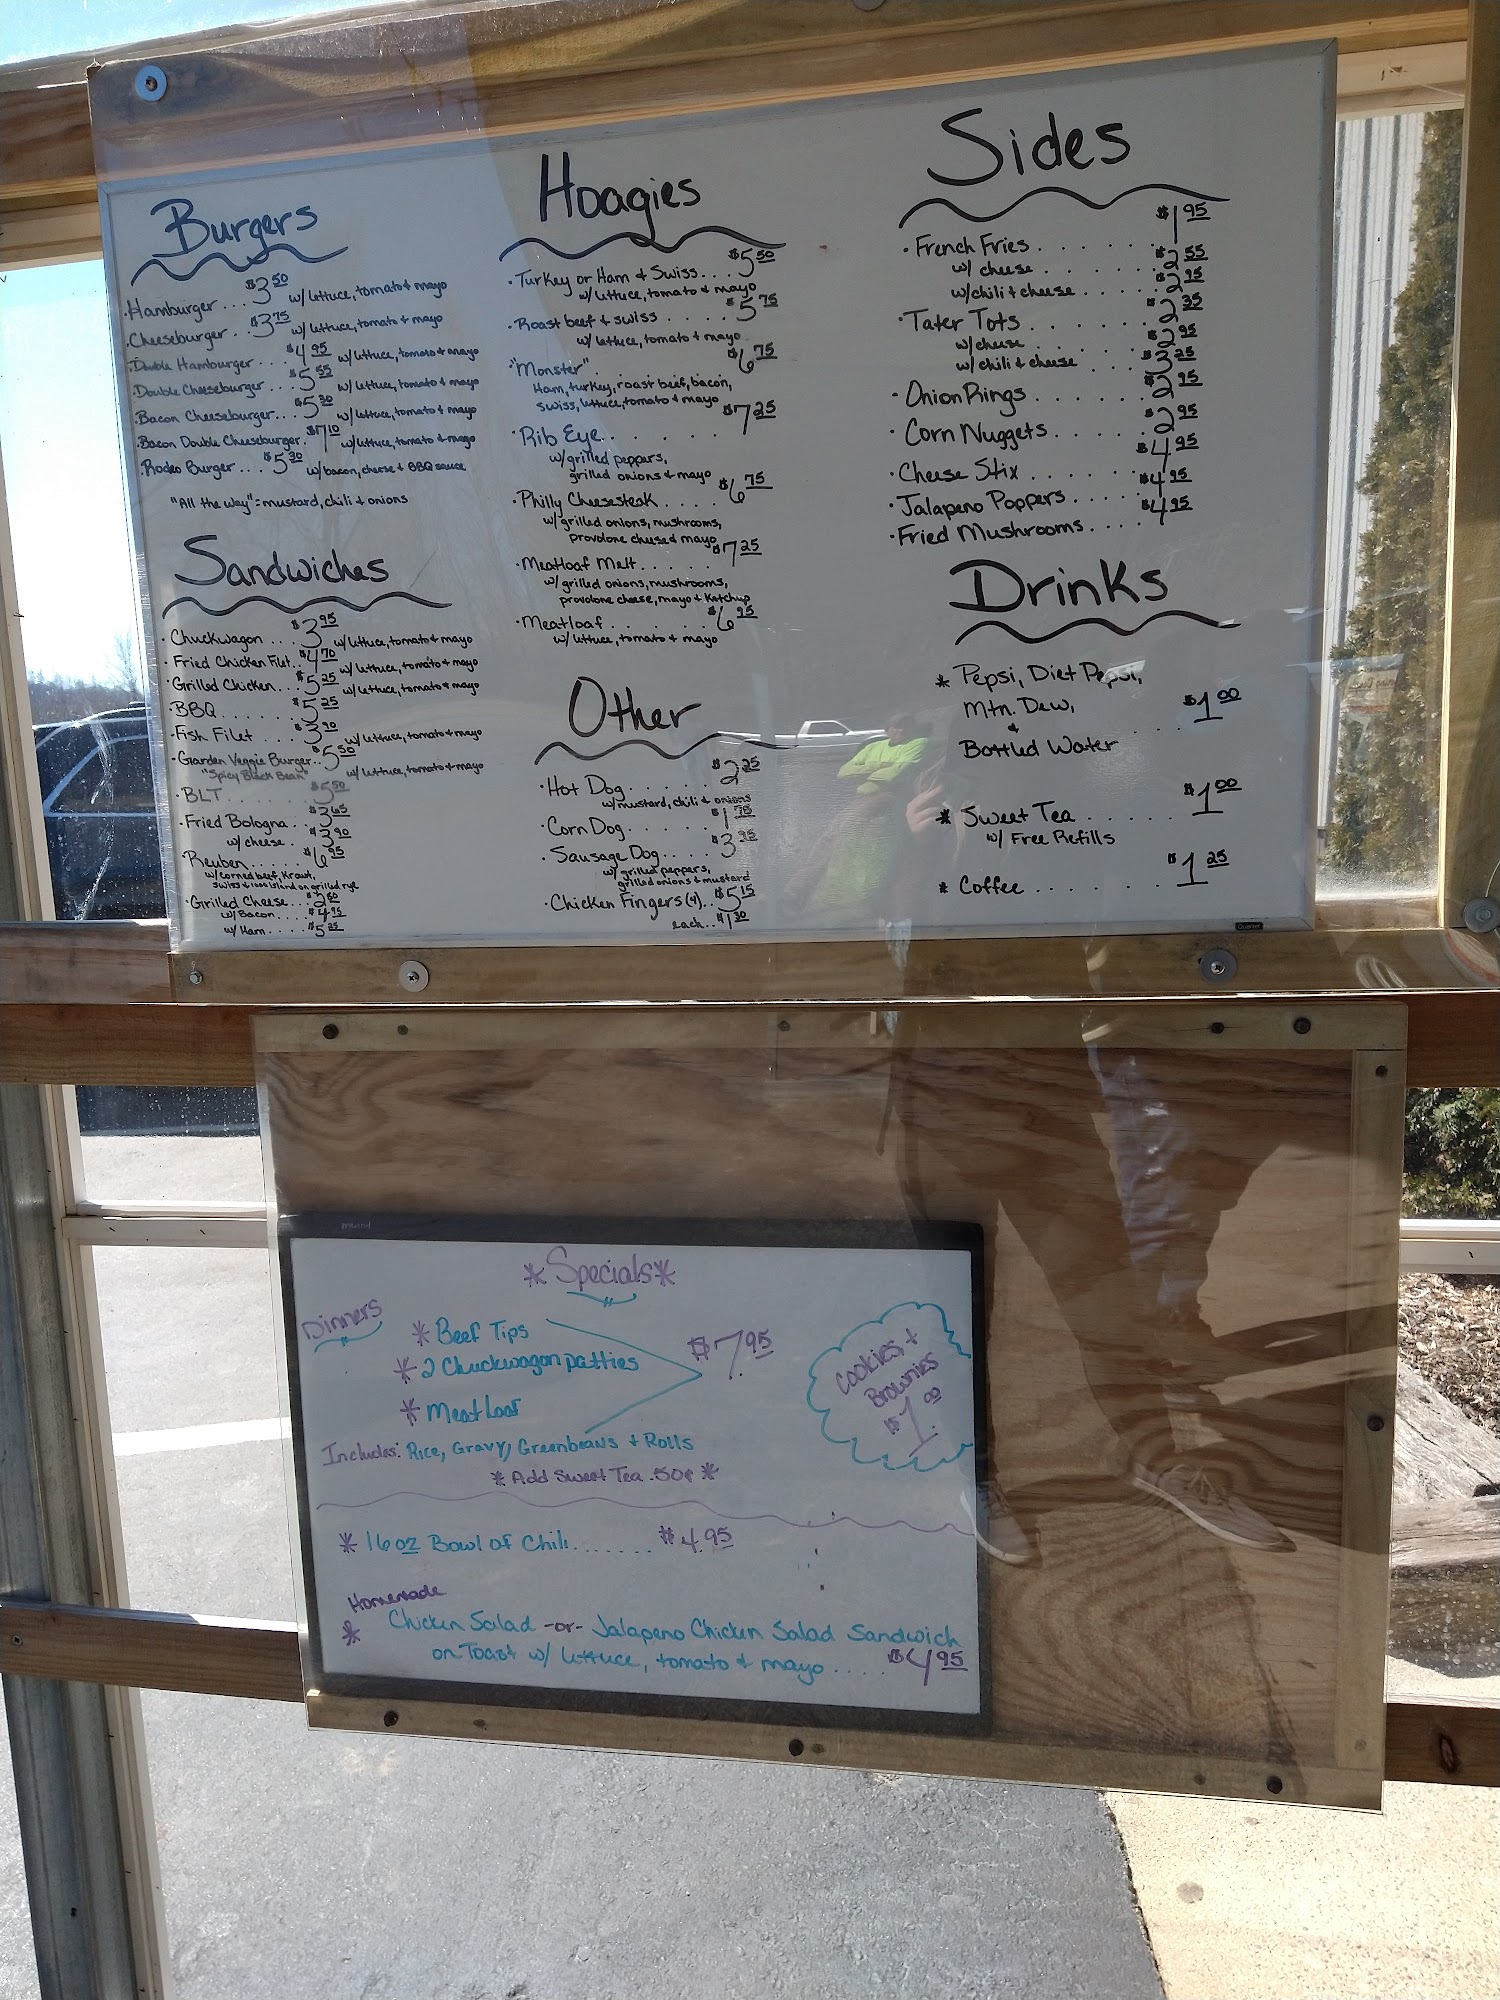 Burgers
·Hamburger...$3.50 w/ lettuce, tomato + mayo
·Cheeseburger..$3.75 w/ lettuce, tomato + mayo
·Double Hamburger...$4.95 w/ lettuce, tomato + mayo
·Double Cheeseburger...$5.55 w/ lettuce, tomato + mayo
·Bacon Cheeseburger...$5.30 w/ lettuce, tomato + mayo
·Bacon Double Cheeseburger.$7.10 w/ lettuce, tomato + mayo
·Rodeo Burger...$5.30 w/ bacon, cheese + BBQ sauce
"All the way"=mustard, chili + onions
Sandwiches
·Chuckwagon...$3.95 w/ lettuce, tomato + mayo
·Fried Chicken Filet..$4.70 w/ lettuce, tomato + mayo
·Grilled Chicken...$5.25 w/ lettuce, tomato + mayo
·BBQ......$5.25
·Fish Filet....$3.90 w/ lettuce, tomato + mayo
·Garden Veggie Burger..$5.50 w/ lettuce, tomato + mayo
"Spicy Black Bean"
·BLT.......$5.50
·Fried Bologna..$3.65
w/ cheese..$3.90
·Reuben.....$6.95
w/ corned beef, Kraut,
swiss + 1000 island on grilled rye
·Grilled Cheese...$2.50
w/ Bacon....$4.95
w/ Ham....$5.25
Hoagies
·Turkey or Ham & Swiss...$5.50
w/ lettuce, tomato + mayo
·Roast beef & swiss.....$5.75
w/ lettuce, tomato + mayo
·"Monster".....$6.75
Ham, turkey, roast beef, bacon,
swiss, lettuce, tomato + mayo
·Rib Eye......$7.25
w/grilled peppers,
grilled onions & mayo
·Philly Cheesesteak....$6.75
w/grilled onions, mushrooms,
provolone cheese & mayo
·Meatloaf Melt.....$7.25
w/ grilled onions, mushrooms,
provolone cheese, mayo + Ketchup
·Meatloaf......$6.95
w/ lettuce, tomato + mayo
Other
·Hot Dog......$2.25
w/mustard, chili + onions
·Corn Dog......$1.75
·Sausage Dog....$3.95
w/ grilled peppers,
grilled onions & mustard
·Chicken Fingers (4)..$5.15
each..$1.30
Sides
·French Fries.......$1.95
w/ cheese.......$2.55
w/chili + cheese......$2.95
·Tater Tots.......$2.35
w/cheese.......$2.95
w/ chili & cheese......$3.25
·Onion Rings.......$2.95
·Corn Nuggets......$2.95
·Cheese Stix......$4.95
·Jalapeno Poppers.....$4.95
·Fried Mushrooms....$4.95
Drinks
* Pepsi, Diet Pepsi,
Mtn. Dew,
&.....$1.00
Bottled Water
* Sweet Tea......$1.00
w/ Free Refills
* Coffee.......$1.25
Quartet
*Specials*
Dinners
* Beef Tips
* 2 Chuckwagon patties $7.95
* Meat Loaf
Includes: Rice, Gravy, Greenbeans + Rolls
* Add Sweet Tea .50¢ *
Cookies +
Brownies
$1.00
* 16oz Bowl of Chili.......$4.95
Homemade
* Chicken Salad -or- Jalapeno Chicken Salad Sandwich
on Toast w/ lettuce, tomato + mayo.....$4.95